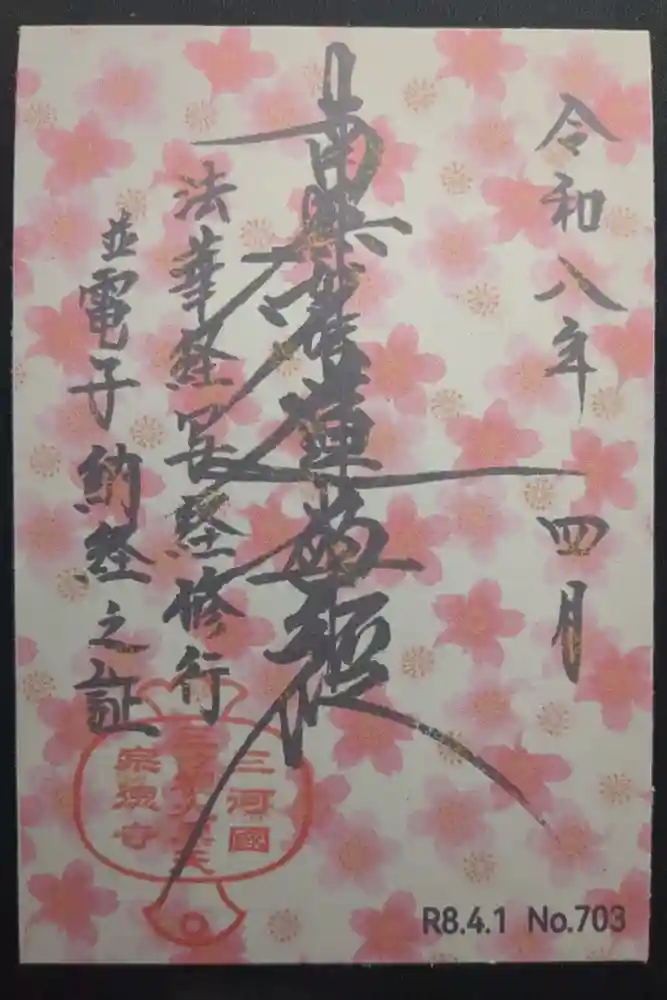 令和八年 四月
南無妙法蓮華経
法華経写経修行
並電子納経之証
三河國
三面大黒天
宗徳寺
R8.4.1 No.703